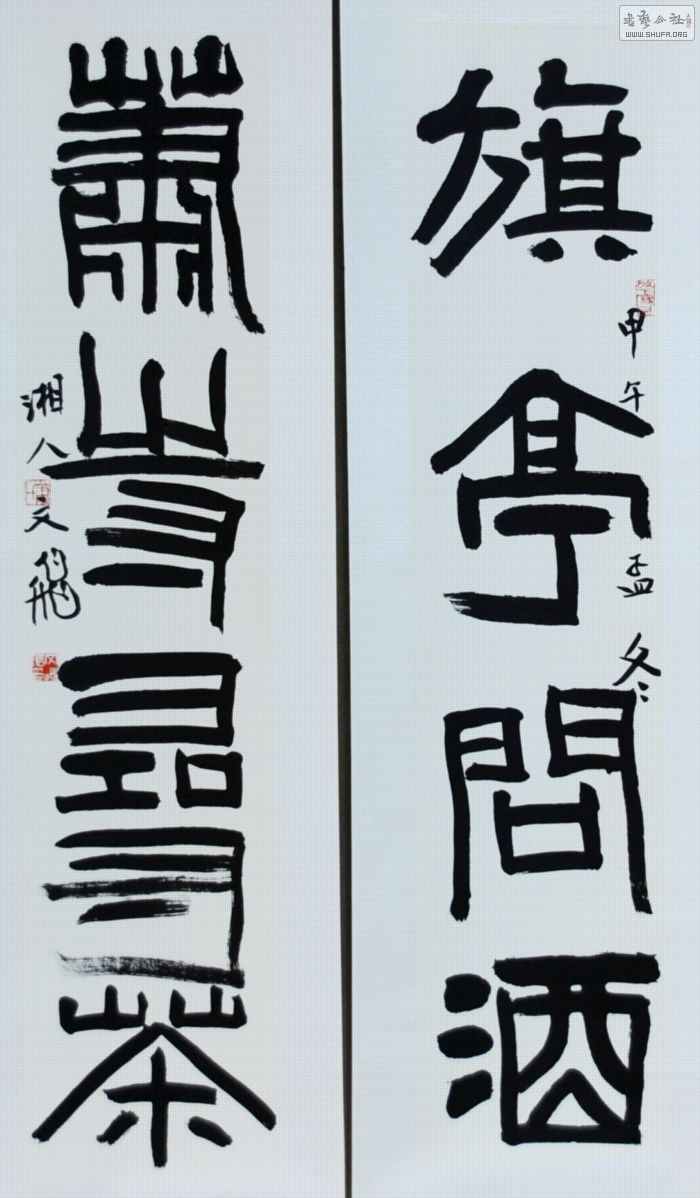 書藝公社
WWW.SHUFA.ORG
旗亭問酒
甲午孟冬
蕭寺尋茶
湘人文飛